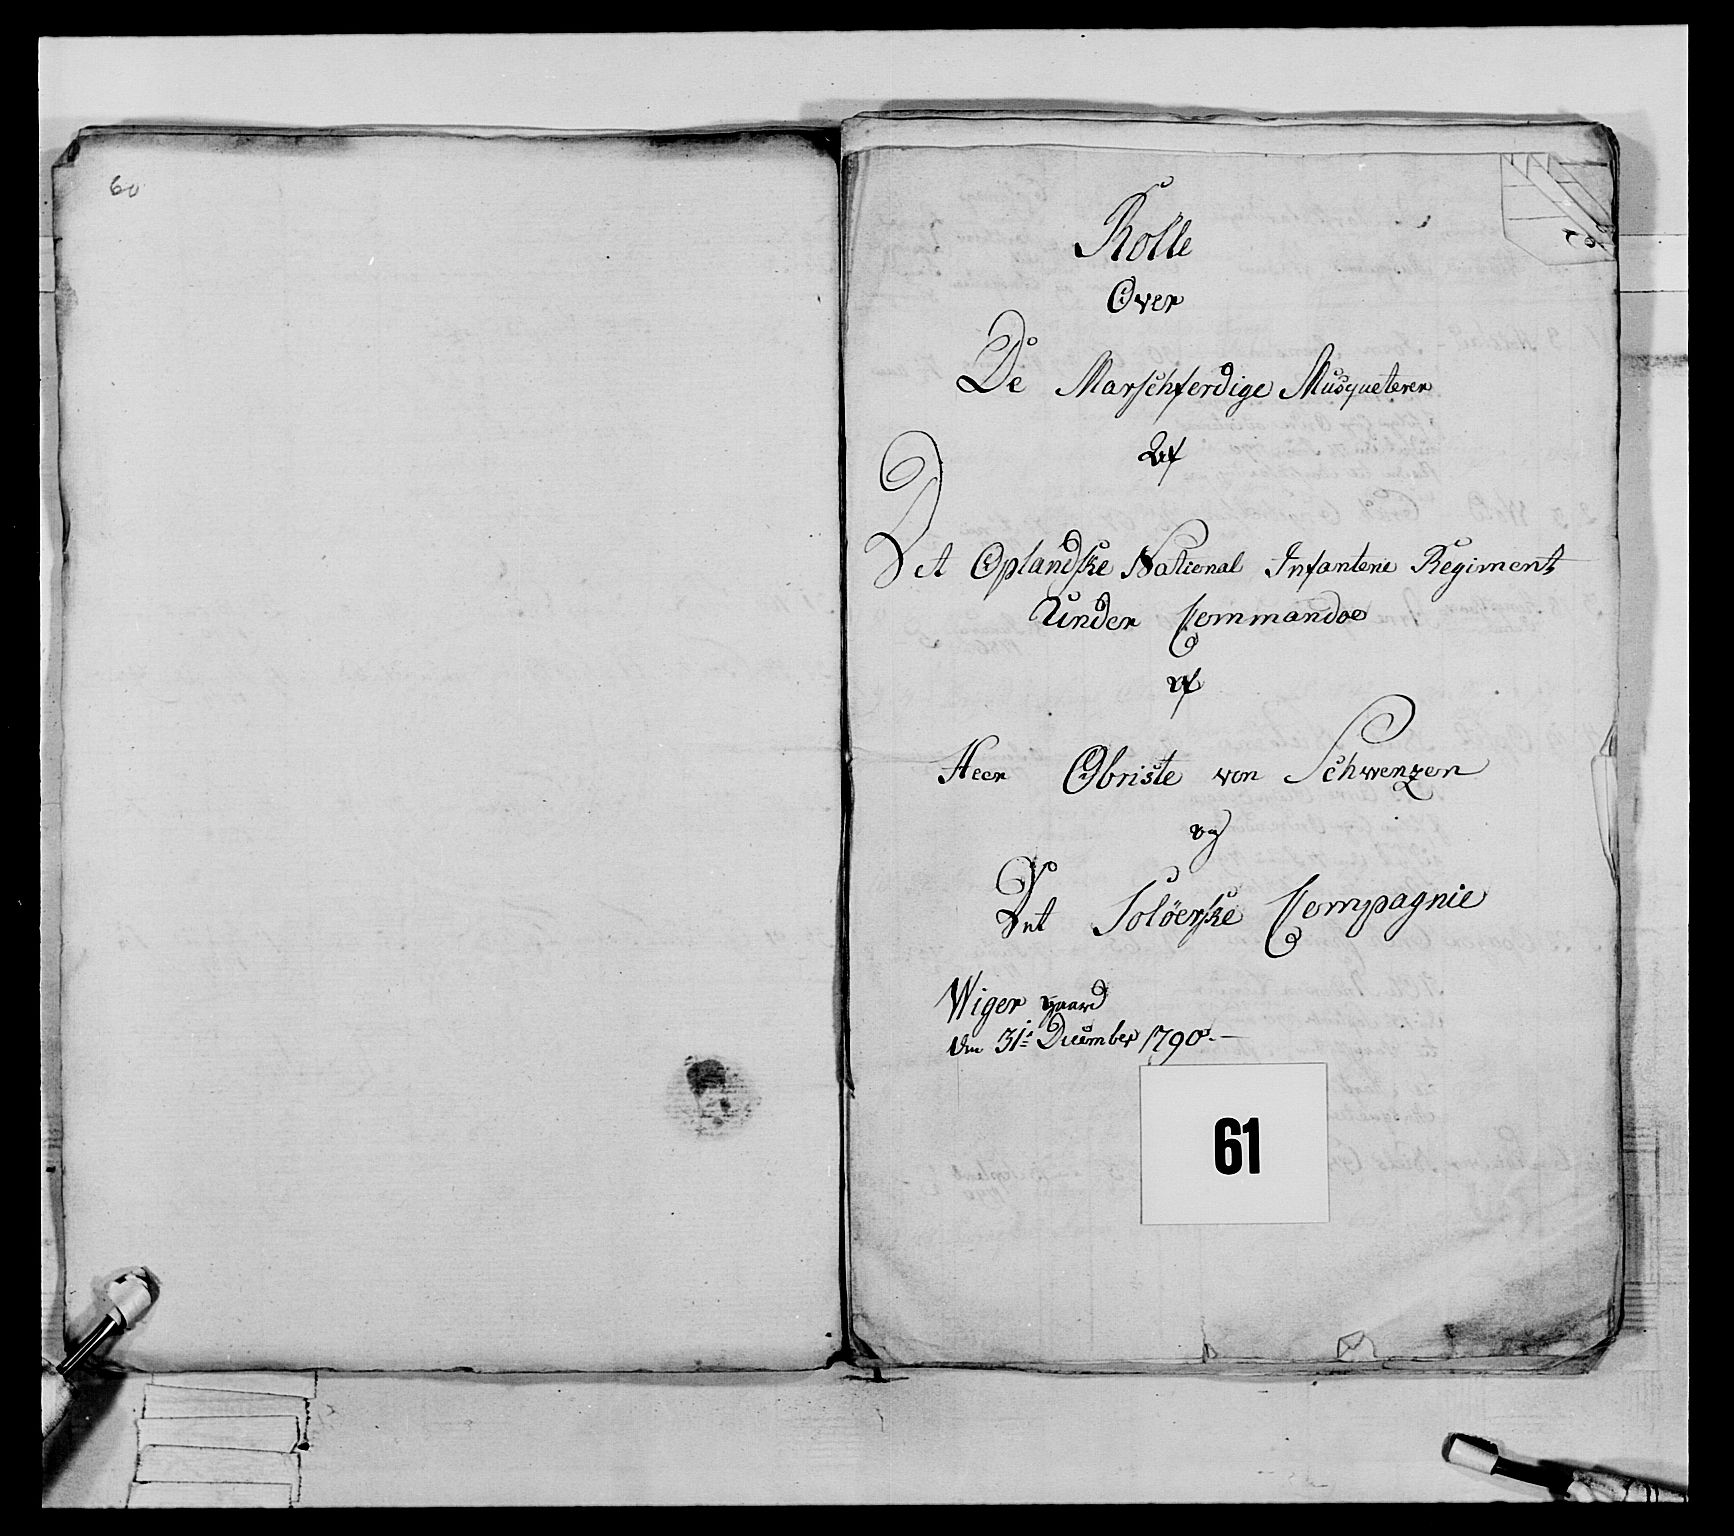 60
Rolle
Over
De Marschferdige Musqueterer
Af
Det Oplandske National Infanterie Regiment
Under Commandoe
af
Herr Obriste von Schwenzen
og
Det Solöerske Compagnie
Wiger gaard
den 31. December 1790.
61